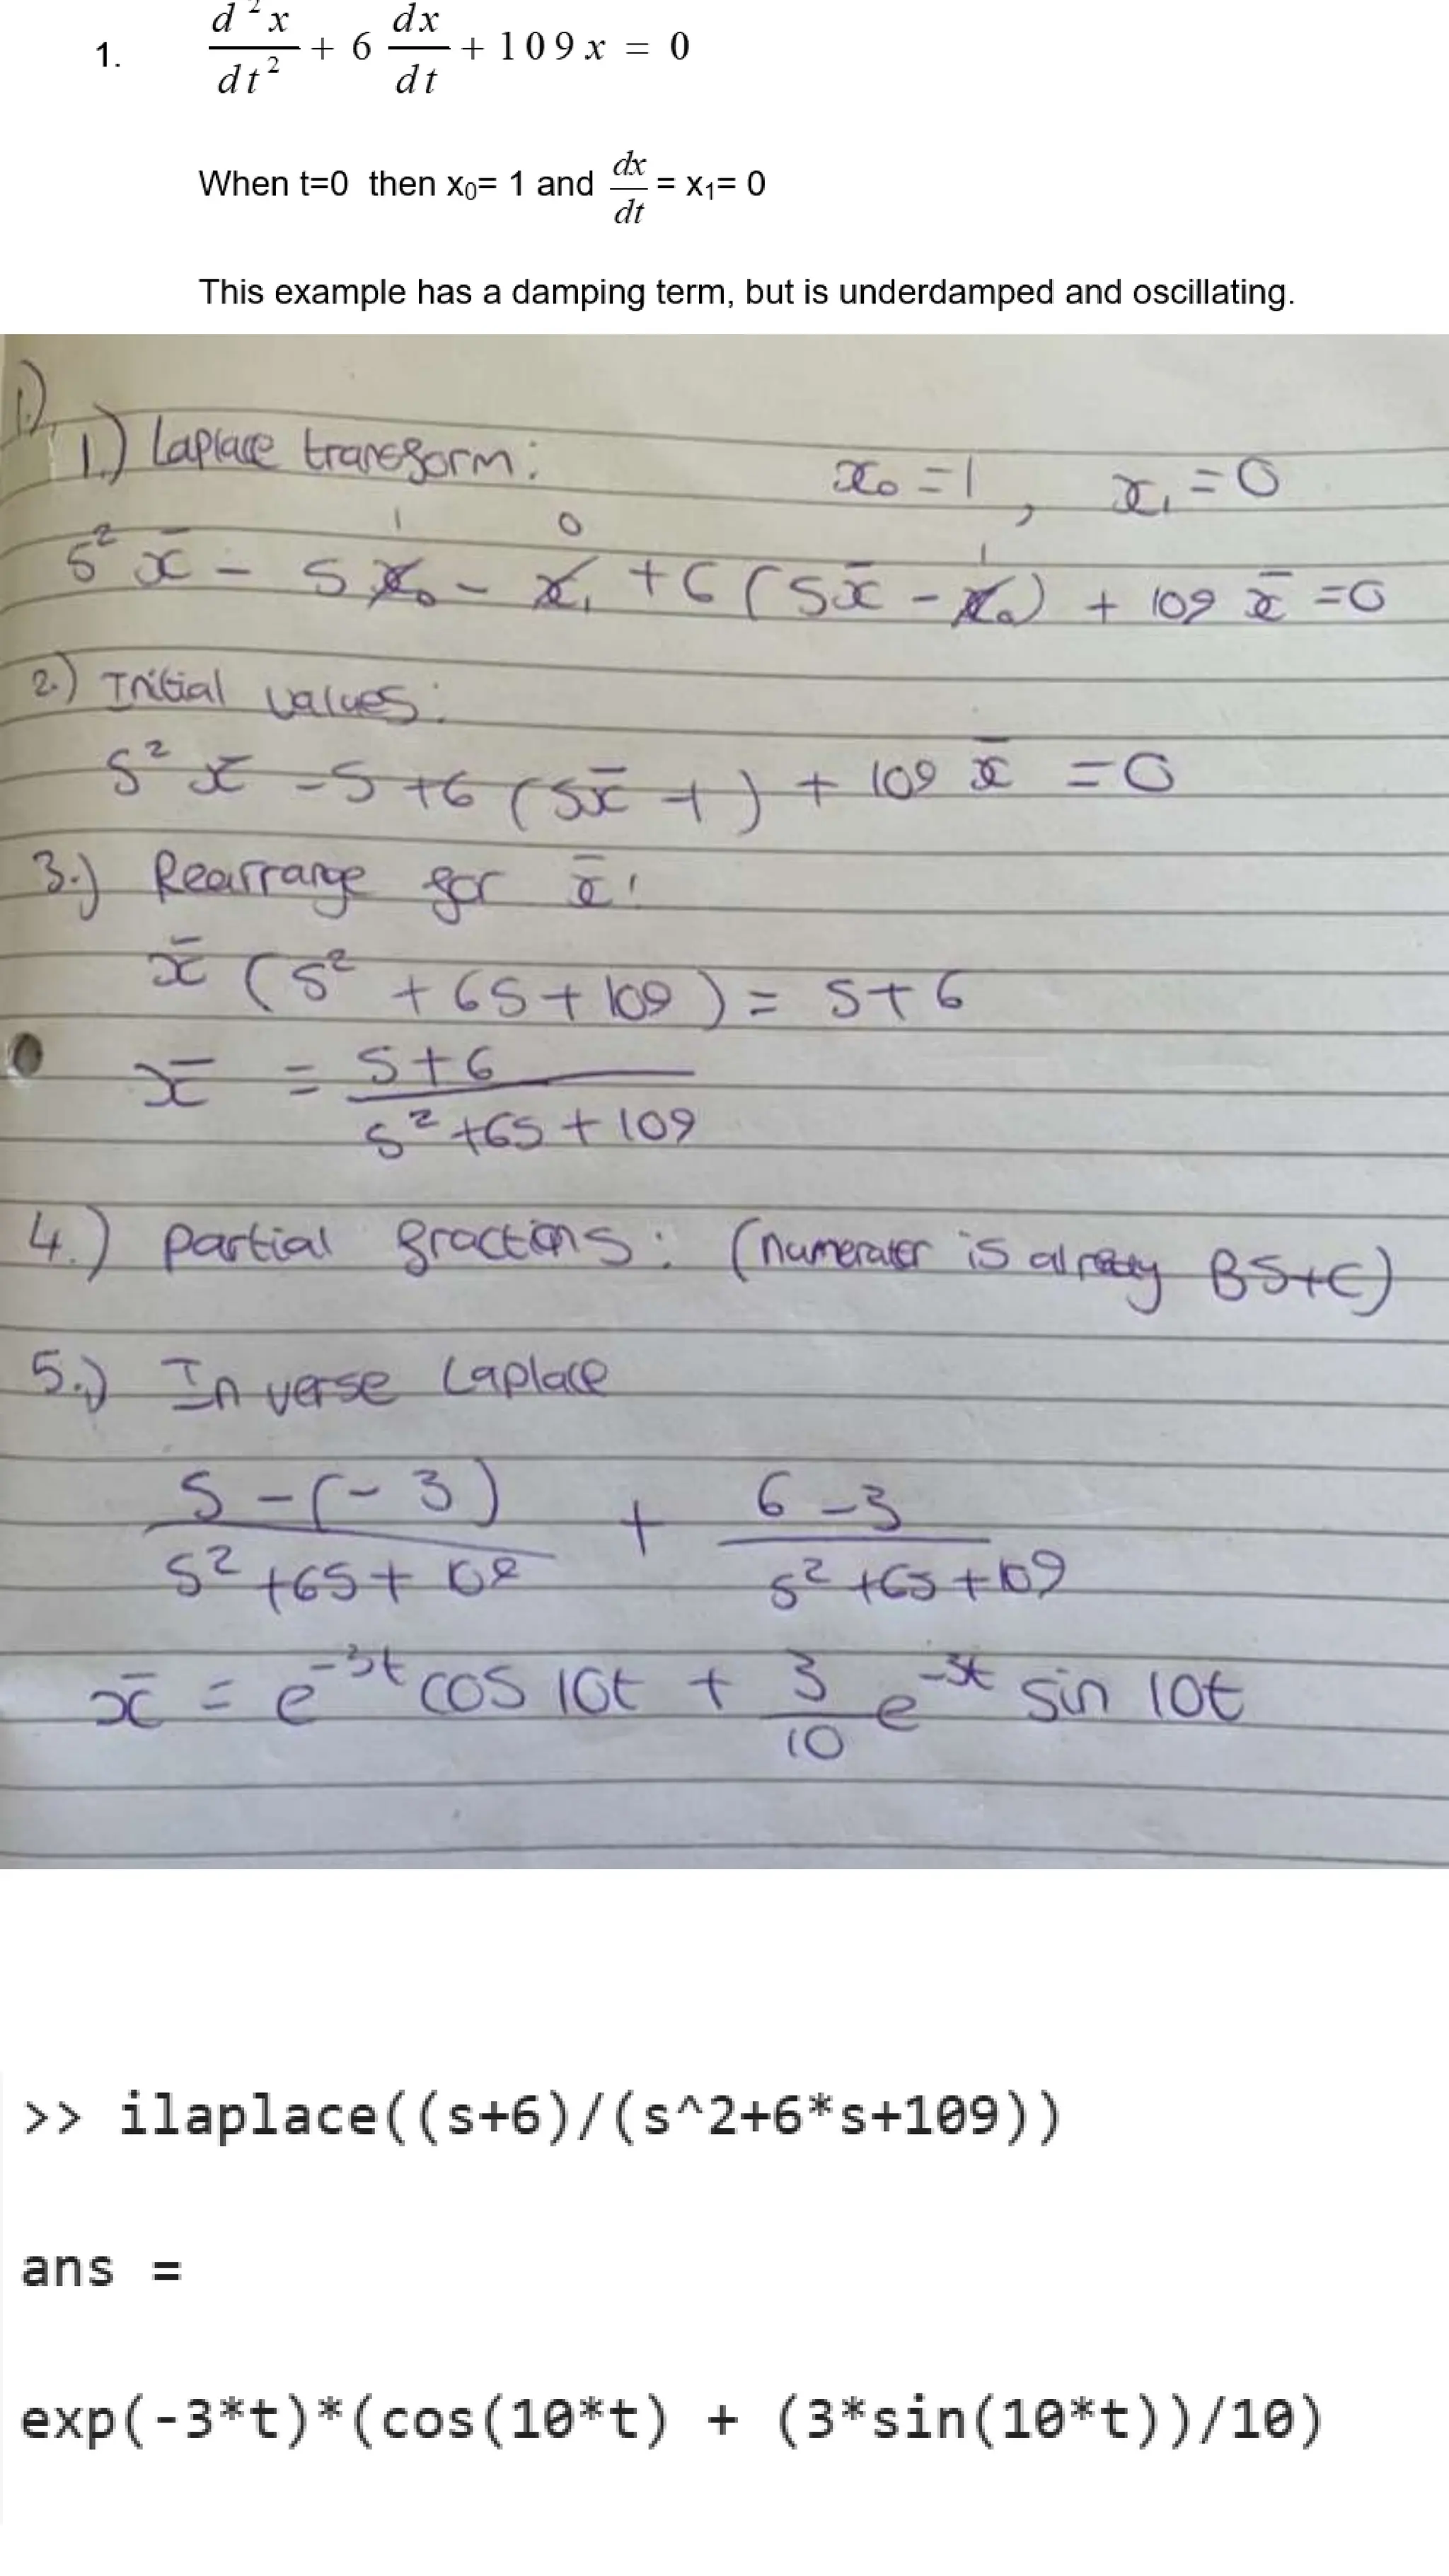 1. d²x/dt² + 6 dx/dt + 109x = 0
When t=0 then x₀= 1 and dx/dt = x₁= 0
This example has a damping term, but is underdamped and oscillating.
1.)
1.) Laplace transform: x₀ = 1 , x₁ = 0
1 0 1
s² x̄ - s x₀ - x₁ + 6 (s x̄ - x₀) + 109 x̄ = 0
2.) Initial values:
s² x̄ - s + 6 (s x̄ - 1) + 109 x̄ = 0
3.) Rearrange for x̄:
x̄ (s² + 6s + 109) = s + 6
x̄ = s+6 / s²+6s+109
4.) partial fractions: (numerator is already Bs+C)
5.) Inverse Laplace
s-(-3) / s²+6s+109 + 6-3 / s²+6s+109
x̄ = e⁻³ᵗ cos 10t + 3/10 e⁻³ᵗ sin 10t
>> ilaplace((s+6)/(s^2+6*s+109))
ans =
exp(-3*t)*(cos(10*t) + (3*sin(10*t))/10)